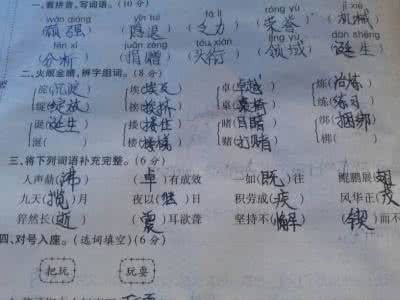 一、看拼音,写词语。(10分)
wán qiáng yǐn tuì fá lì róng yù jī xiè
顽强 隐退 乏力 荣誉 机械
fēn xī juān zèng tóu xián lǐng yù dàn shēng
分析 捐赠 头衔 领域 诞生
二、火眼金睛,辨字组词。(8分)
淀(沉淀) 埃(埃及) 卓(卓越) 炼(冶炼)
绽(绽放) 挨(挨挤) 桌(桌椅) 练(练习)
诞(诞生) 搂(搂住) 睹(目睹) 绑(捆绑)
涎( ) 楼( ) 赌(打赌) 梆(
三、将下列词语补充完整。(6分)
人声鼎(沸) (卓)有成效 一如(既)往 鲲鹏展(翅
九天(揽)月 夜以(继)日 积劳成(疾) 风华正(茂
猝然长(逝) (震)耳欲聋 坚持不(懈) (锲)而不
四、对号入座。(选词填空)(6分)
把玩 玩耍